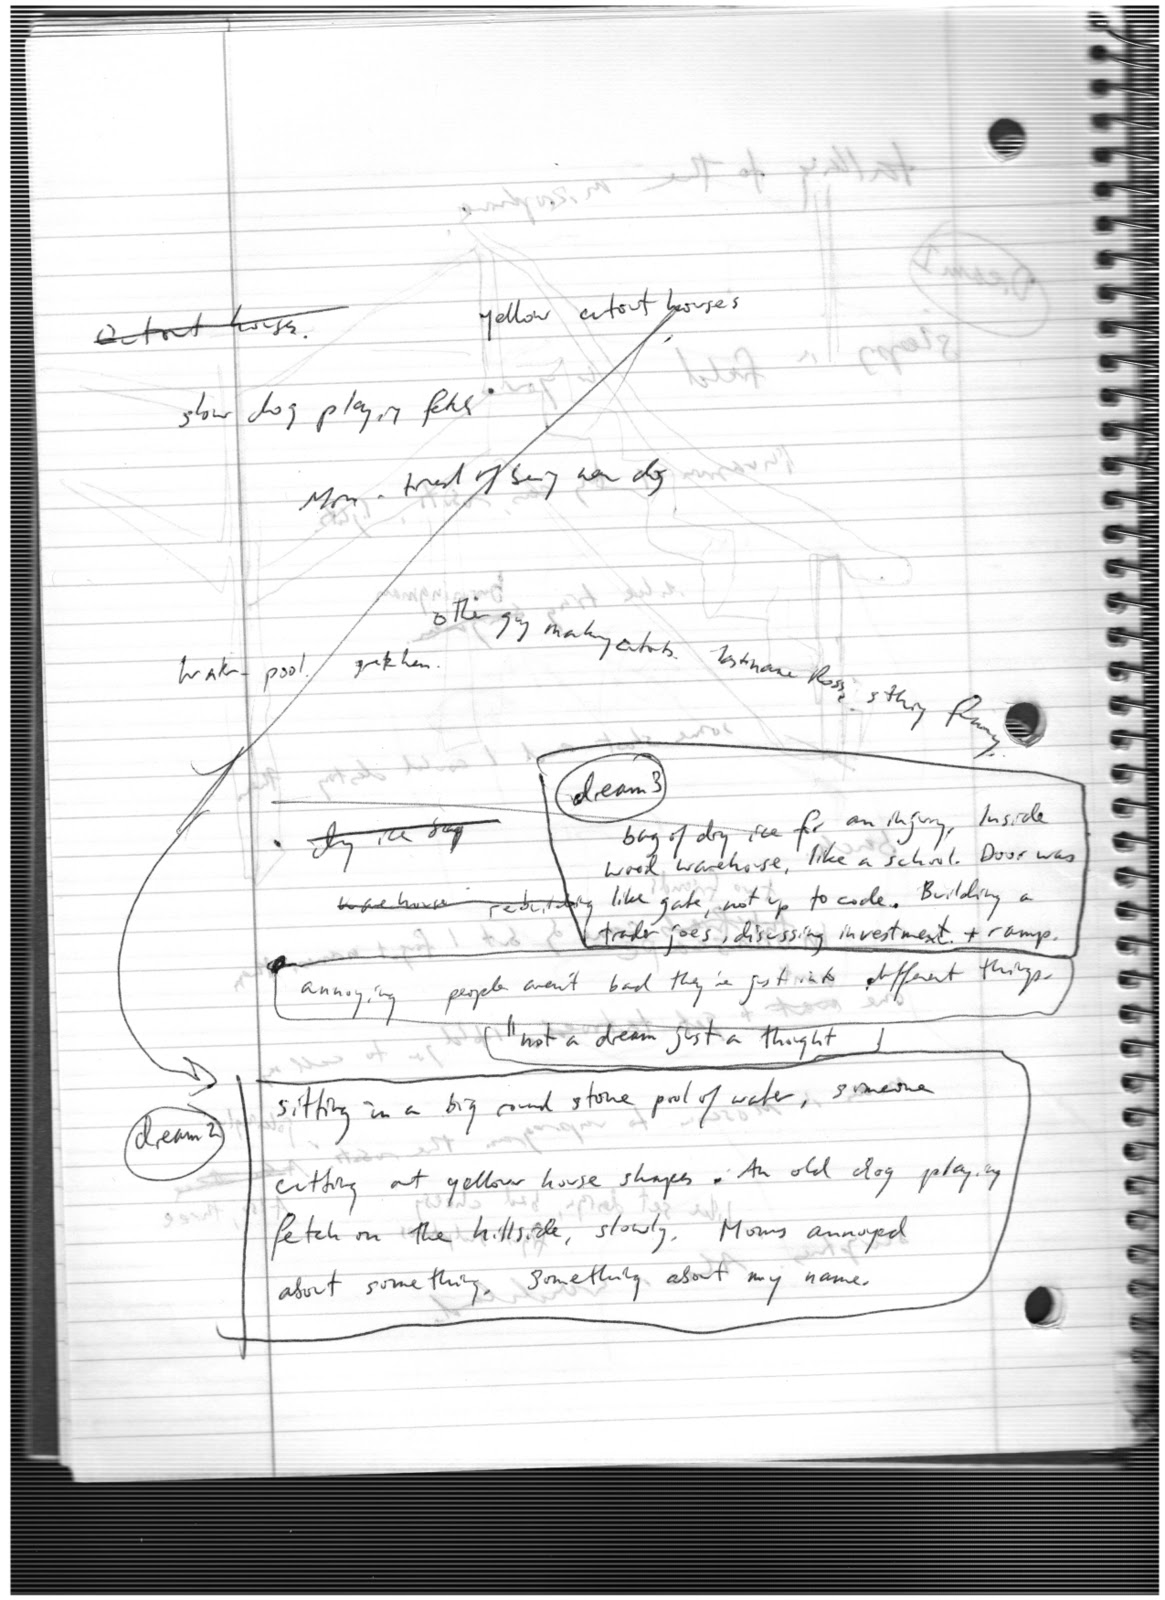 cutout house.
yellow cutout houses
slow dog playing fetch
Mom - tired of being
dog
other guy making cutouts. lastname Ross. sthing funny.
water pool. gretchen.
dream 3
dry ice bag
bag of dry ice for an injury. Inside
wood warehouse, like a school. Door was
warehouse rebuilding
like gate, not up to code. Building a
trader joes, discussing investment. + ramp.
annoying people aren't bad they're just into different things.
"not a dream just a thought
dream 2
sitting in a big round stone pool of water, someone
cutting out yellow house shapes. An old dog playing
fetch on the hillside, slowly. Moms annoyed
about something. Something about my name.